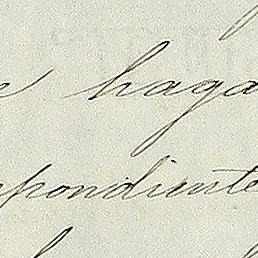 haga
spondiente